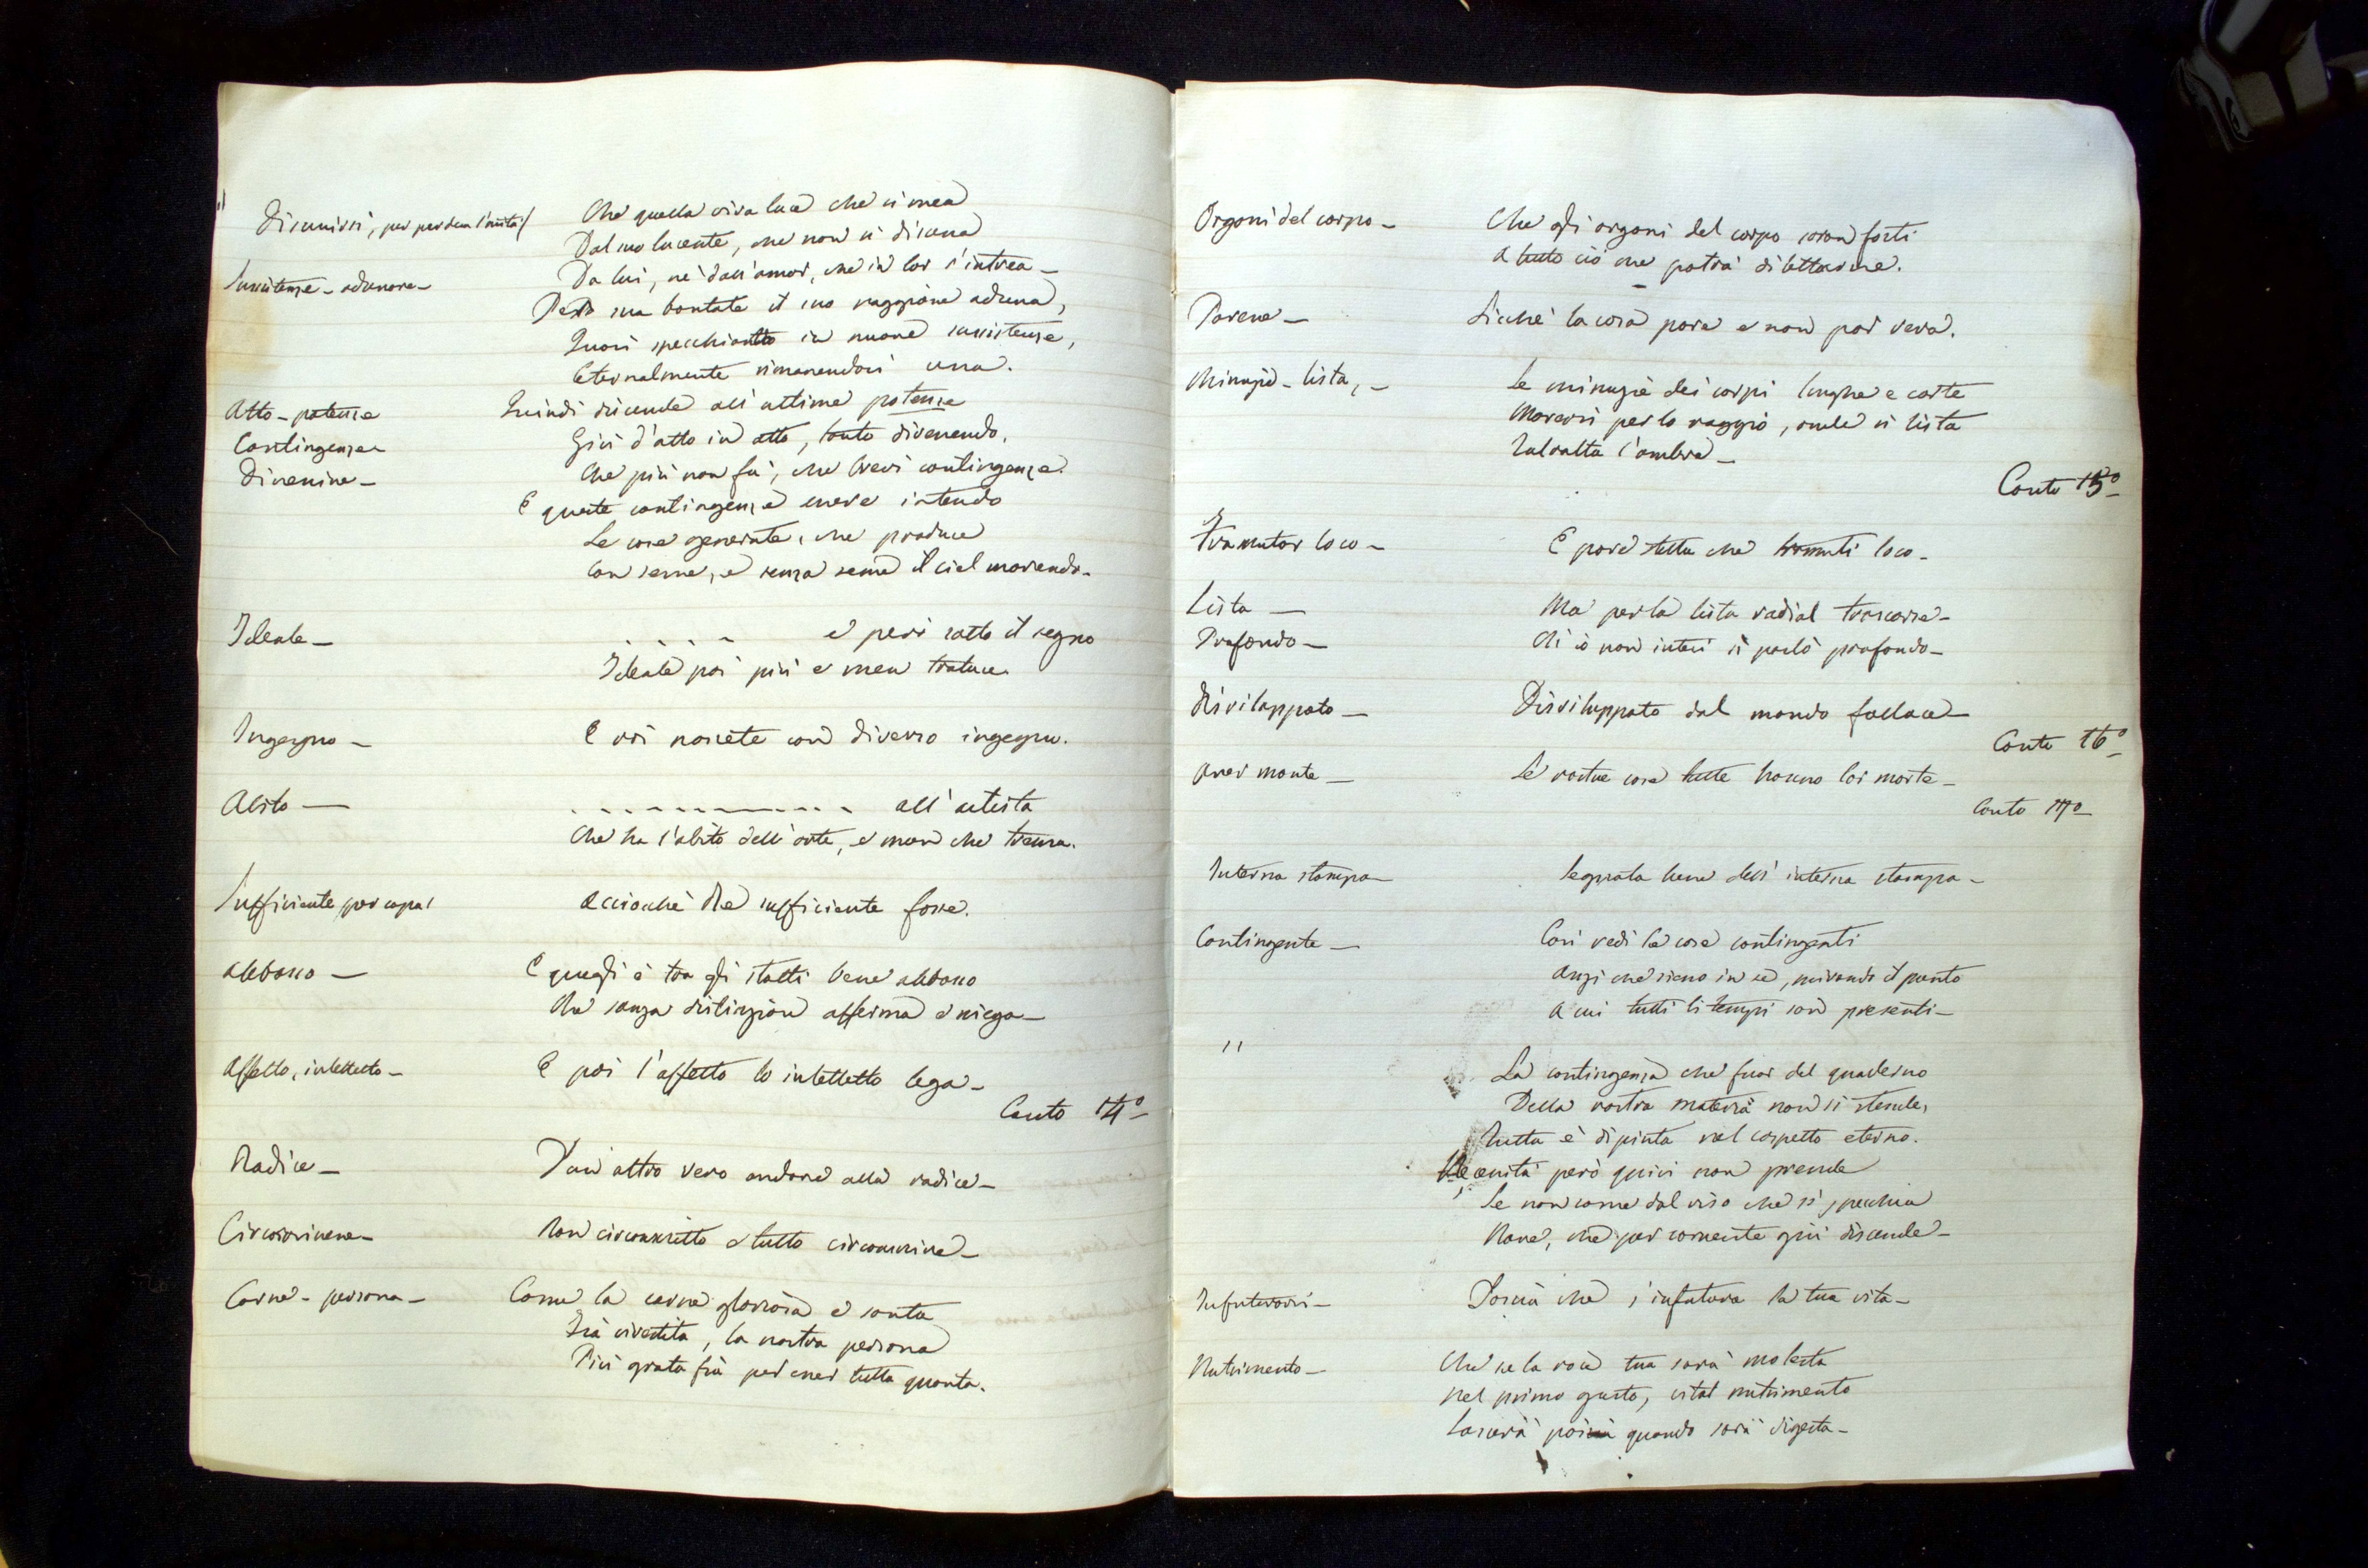 Disunirsi, per perder l'unità/ Che quella viva luce che si mea
Dal suo lucente, che non si disuna
Da lui, nè dall'amor, che in lor s'intrea –
Sussistenze – adunare – Per sua bontate il suo raggiare aduna,
Quasi specchiato in nuove sussistenze,
Eternalmente rimanendosi una.
Atto – potenza Quindi discende all'ultime potenze
Contingenza – Giù d'atto in atto, tanto divenendo,
Divenire – Che più non fa, che brevi contingenze.
E queste contingenze essere intendo
Le cose generate, che produce
Con seme, e senza seme il ciel movendo –
Ideale – . . . . e però sotto il segno
Ideale poi più e men traluce
Ingegno – E voi nascete con diverso ingegno.
Abito – . . . . . . . . . . . all'artista
Che ha l'abito dell'arte, e man che trema.
Sufficiente per capa/ Acciocchè Re sufficiente fosse.
Abbasso – E quegli è tra gli stolti bene abbasso
Che sanza distinzion afferma e niega –
Affetto, intelletto – E poi l'affetto lo intelletto lega –
Canto 14º
Radice – D'un altro vero andare alla radice –
Circoscrivere – Non circonscritto e tutto circonscrive –
Carne – persona – Come la carne gloriosa e santa
Fia rivestita, la nostra persona
Più grata fia per esser tutta quanta.
Organi del corpo – Che gli organi del corpo saran forti
A tutto ciò che potrà dilettarne.
Parere – Sicchè la cosa pare e non par vera.
Minuzie – lista, – Le minuzie dei corpi lunghe e corte
Moversi per lo raggio, onde si lista
Talvolta l'ombra –
Canto 15º
Tramutar loco – E pare stella che tramuti loco –
Lista – Ma per la lista radial trascorse –
Profondo – Ch'io non intesi sì parlò profondo –
Disviluppato – Disviluppato dal mondo fallace –
Canto 16º
Aver morte – Le vostre cose tutte hanno lor morte –
Canto 17º
Interna stampa – Segnata bene dell'interna stampa –
Contingente – Così vedi le cose contingenti
Anzi che sieno in sè, mirando il punto
A cui tutti li tempi son presenti –
" La contingenza che fuor del quaderno
Della vostra materia non si stende,
Tutta è dipinta nel cospetto eterno.
Necessità però quivi non prende
Se non come dal viso che si specchia
Nave, che per corrente giù discende –
Infuturarsi – Poscia che s'infutura la tua vita –
Nutrimento – Chè se la voce tua sarà molesta
Nel primo gusto, vital nutrimento
Lascerà poi quando sarà digesta –